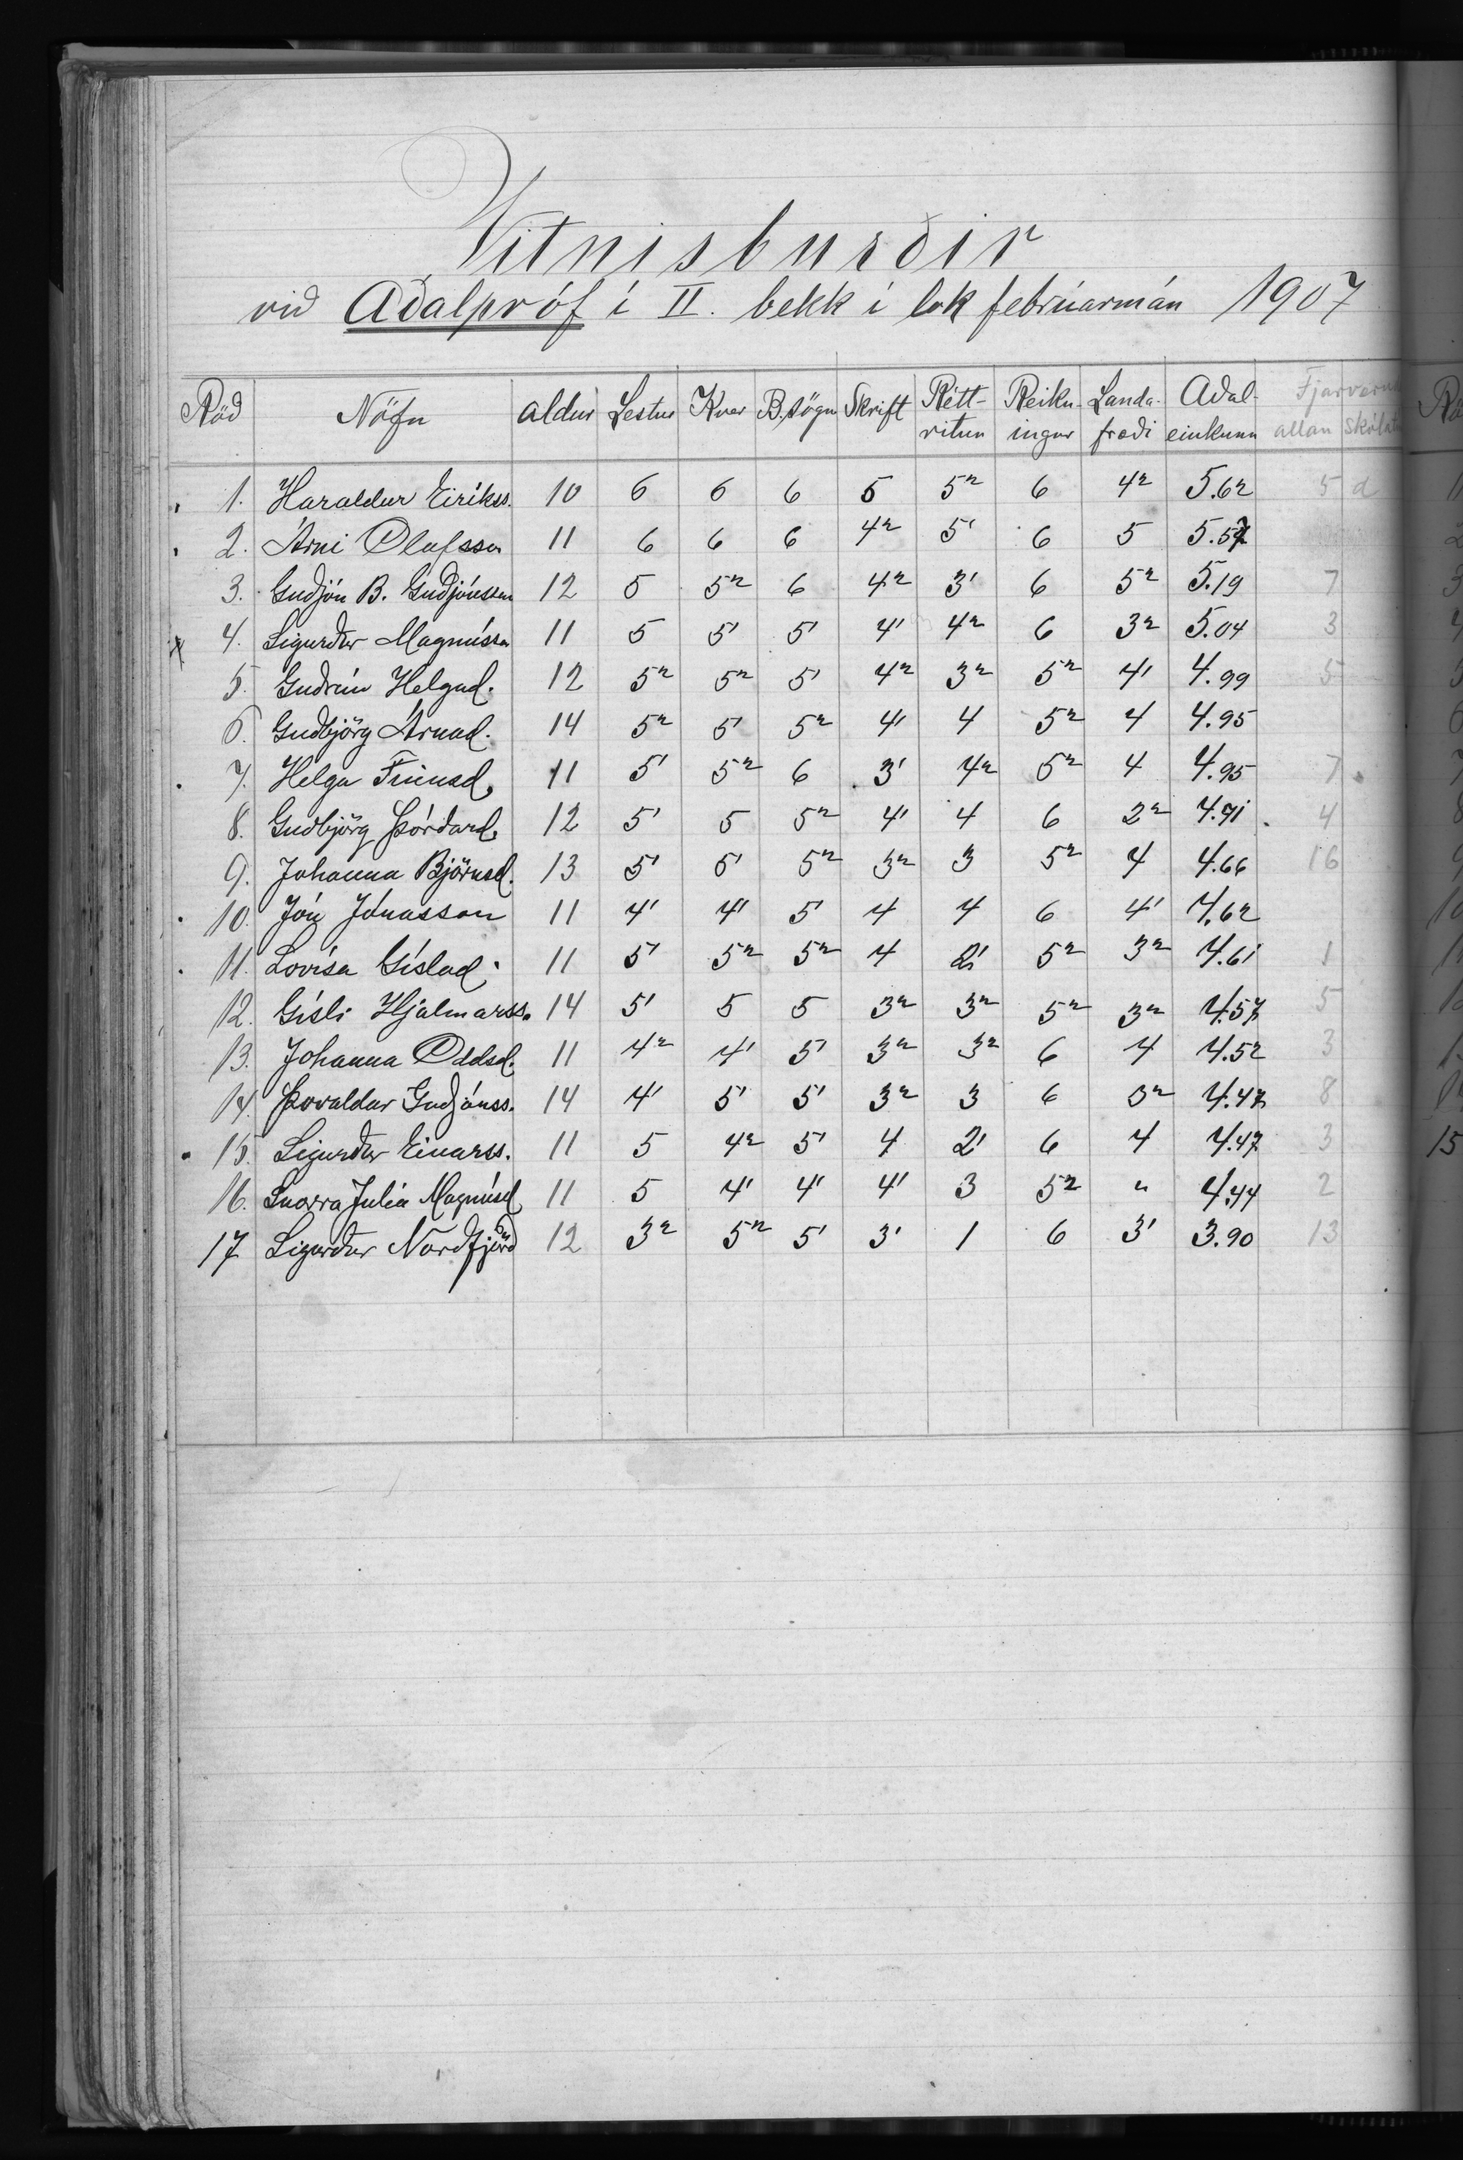 Vitnisburðir
við Aðalpróf í II. bekk í lok febrúarmán 1907
Röð Nöfn aldur Lestur Kver B.sögu Skrift Rétt-ritun Reikn-ingur Landa-fræði Aðal-einkunn Fjarverud allan skólat
1. Haraldur Eirikss. 10 6 6 6 5 5² 6 4² 5.62 5 d
2. Árni Olafsson 11 6 6 6 4² 5' 6 5 5.57
3. Guðjón B. Guðjónsson 12 5 5² 6 4² 3' 6 5² 5.19 7
4. Sigurður Magnússon 11 5 5' 5' 4' 4² 6 3² 5.04 3
5. Guðrún Helgad. 12 5² 5² 5' 4² 3² 5² 4' 4.99 5
6. Guðbjörg Árnad. 14 5² 5' 5² 4' 4 5² 4 4.95
7. Helga Finnsd. 11 5' 5² 6 3' 4² 5² 4 4.95 7
8. Guðbjörg Þórðard. 12 5' 5 5² 4' 4 6 2² 4.91 4
9. Johanna Björnsd. 13 5' 5' 5² 3² 3 5² 4 4.66 16
10. Jón Jónasson 11 4' 4' 5' 4 4 6 4' 4.62
11. Lovísa Gíslad. 11 5' 5² 5² 4 2' 5² 3² 4.61 1
12. Gísli Hjalmarss. 14 5' 5 5 3² 3² 5² 3² 4.57 5
13. Johanna Oddsd. 11 4² 4' 5' 3² 3² 6 4 4.52 3
14. Þorvaldur Guðjónss. 14 4' 5' 5' 3² 3 6 3² 4.47 8
15. Sigurður Einarss. 11 5 4² 5' 4 2' 6 4 4.47 3
16. Snorra Julia Magnúsd 11 5 4' 4' 4' 3 5² " 4.44 2
17 Sigurður Norðfjörð 12 3² 5² 5' 3' 1 6 3' 3.90 13
15